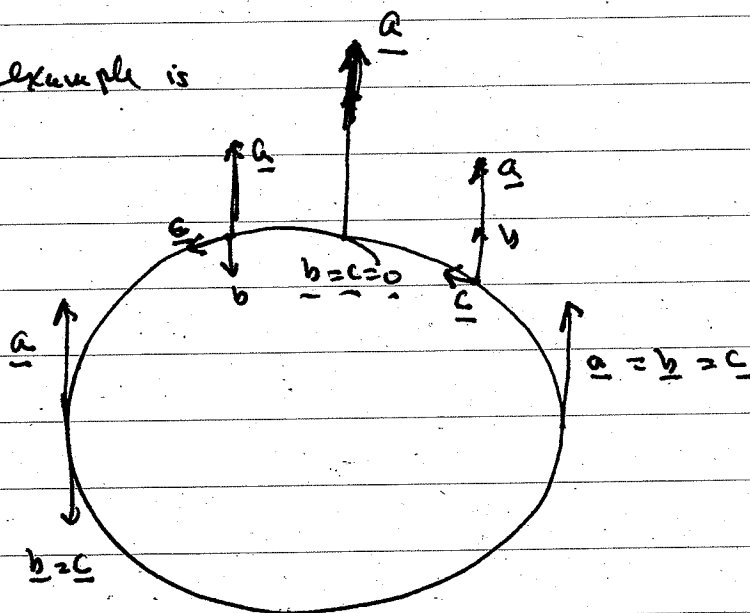 a
example is
a
a
c
b
b
b = c = 0
c
a
a = b = c
b = c